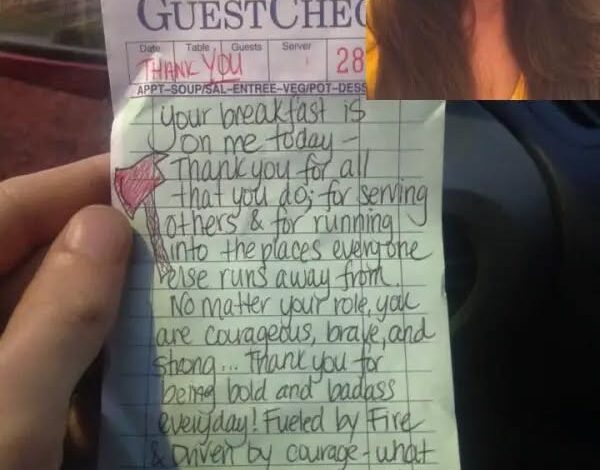 GUESTCHEC
Date Table Guests Server
THANK YOU 28
APPT-SOUP/SAL-ENTREE-VEG/POT-DESS
Your breakfast is
on me today -
Thank you for all
that you do; for serving
others & for running
into the places everyone
else runs away from.
No matter your role, you
are courageous, brave, and
strong... Thank you for
being bold and badass
everyday! Fueled by Fire
& Driven by courage - what